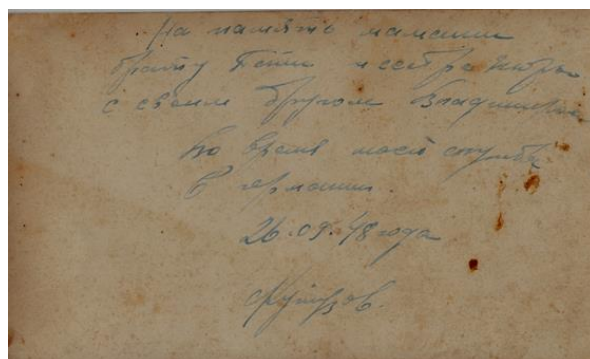 На память мамаши
брату Пети и сестра Нюры
с своим другом Владимиром
Во время моей службы
в германии.
26.09.48 года